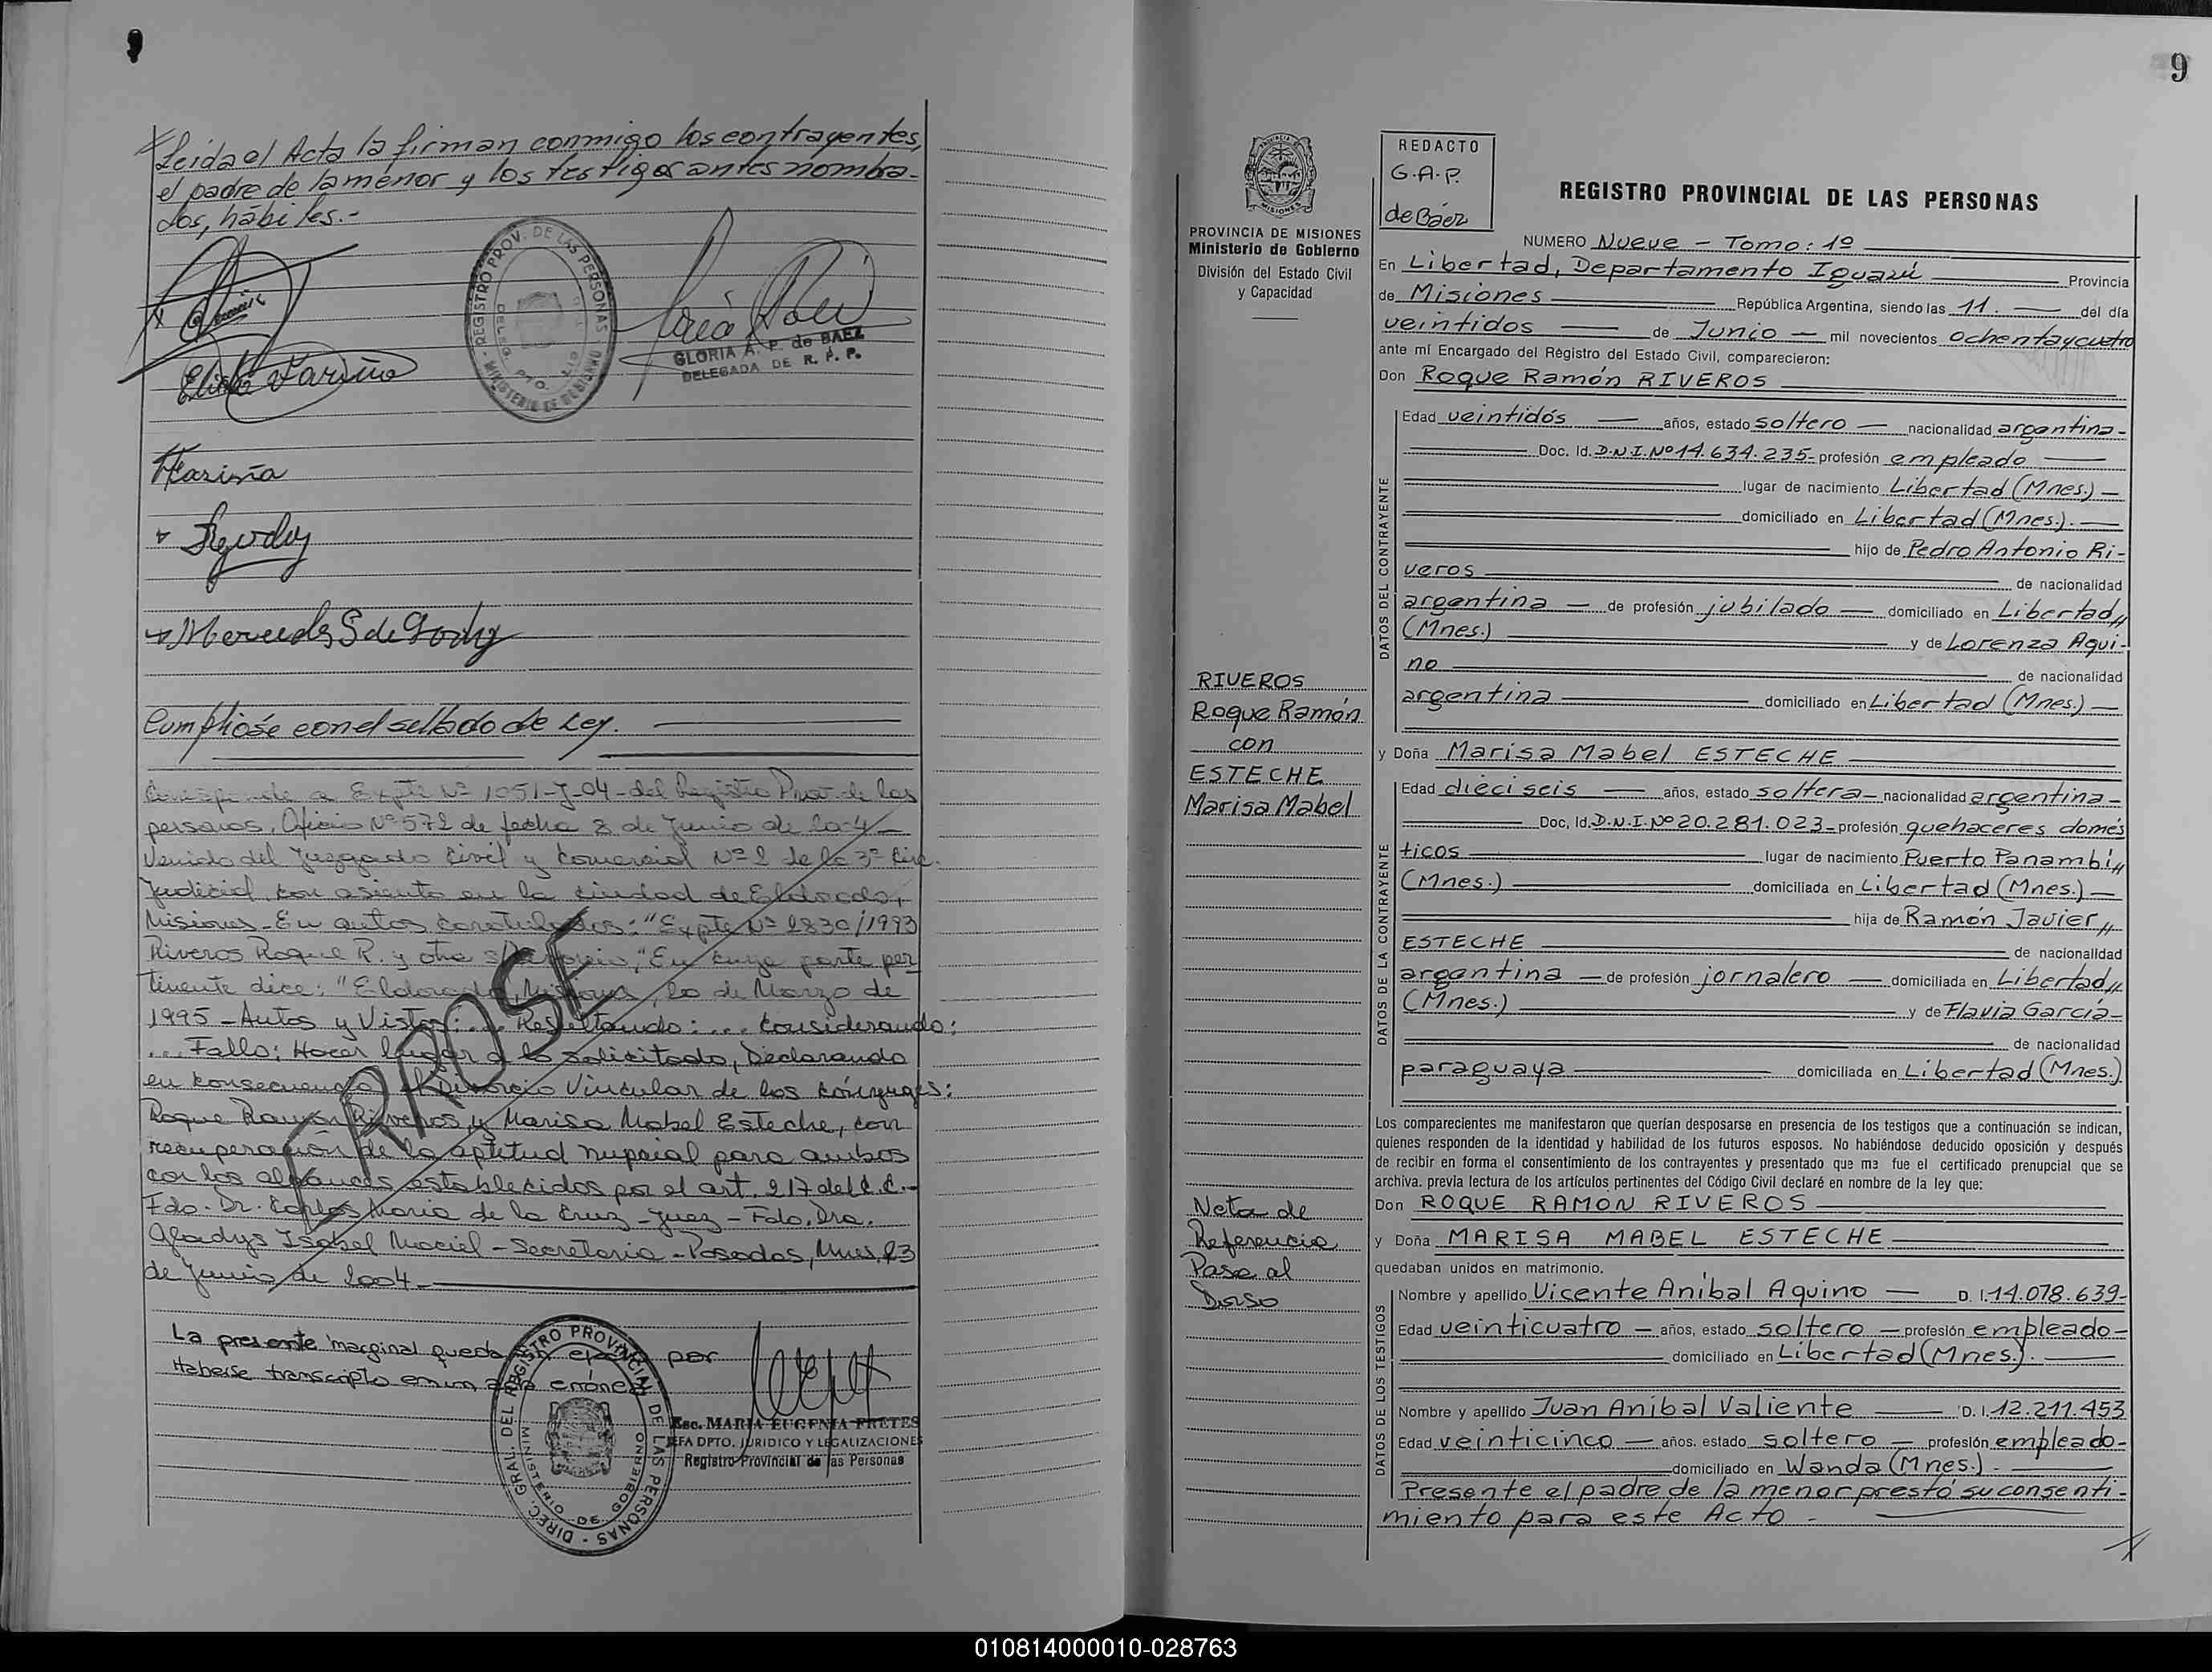 Leida el Acta la firman conmigo los contrayentes,
el padre de la menor y los testigos antes nombra-
dos, hábiles.-
REGISTRO PROV. DE LAS PERSONAS
MINISTERIO DE GOBIERNO
GLORIA A. P. de BAEZ
DELEGADA DE R. P. P.
Fariña
Mercedes S de Godoy
Cumplióse con el sellado de Ley.
Corresponde a Expte Nº 1051-J-04-del Registro Prov. de las
personas, Oficio Nº 572 de fecha 8 de Junio de 2004-
Venido del Juzgado Civil y Comercial Nº 2 de la 3ª Circ.
Judicial con asiento en la ciudad de Eldorado,
Misiones- En autos caratulados: "Expte Nº 2830/1993
Riveros Roque R. y otra s/Divorcio," En cuya parte per
tinente dice: "Eldorado, Misiones, 20 de Marzo de
1995 - Autos y Vistos: ... Resultando: ... Considerando:
... Fallo: Hacer lugar a lo solicitado, Declarando
en consecuencia el Divorcio Vincular de los cónyuges:
Roque Ramón Riveros y Marisa Mabel Esteche, con
recuperación de la aptitud nupcial para ambos
con los alcances establecidos por el art. 217 del C.C.-
Fdo. Dr. Carlos María de la Cruz - Juez - Fdo. Dra.
Gladys Isabel Maciel - Secretaria - Posadas, Mnes, 23
de Junio de 2004.-
ERROSE
La presente marginal queda sin efecto por
Haberse transcripto en un acta errónea
DIREC. GRAL. DEL REGISTRO PROVINCIAL DE LAS PERSONAS
MINISTERIO DE GOBIERNO
Esc. MARIA EUGENIA FRETES
JEFA DPTO. JURIDICO Y LEGALIZACIONES
Registro Provincial de las Personas
9
PROVINCIA DE MISIONES
Ministerio de Gobierno
División del Estado Civil
y Capacidad
RIVEROS
Roque Ramón
con
ESTECHE
Marisa Mabel
Nota de
Referencia
Pasa al
Dorso
REDACTO
G.A.P.
de Báez
REGISTRO PROVINCIAL DE LAS PERSONAS
NUMERO Nueve - Tomo: 1º
En Libertad, Departamento Iguazú Provincia
de Misiones República Argentina, siendo las 11. del día
veintidos de Junio mil novecientos ochenta y cuatro
ante mí Encargado del Régistro del Estado Civil, comparecieron:
Don Roque Ramón RIVEROS
DATOS DEL CONTRAYENTE
Edad veintidós años, estado soltero nacionalidad argentina-
Doc. Id. D.N.I. Nº 14.634.235- profesión empleado
lugar de nacimiento Libertad (Mnes.)
domiciliado en Libertad (Mnes.).
hijo de Pedro Antonio Ri-
veros de nacionalidad
argentina de profesión jubilado domiciliado en Libertad,,
(Mnes.) y de Lorenza Aqui-
no de nacionalidad
argentina domiciliado en Libertad (Mnes.)
y Doña Marisa Mabel ESTECHE
DATOS DE LA CONTRAYENTE
Edad dieciseis años, estado soltera- nacionalidad argentina-
Doc, Id. D.N.I. Nº 20.281.023- profesión quehaceres domés
ticos lugar de nacimiento Puerto Panambí,,
(Mnes.) domiciliada en Libertad (Mnes.)
hija de Ramón Javier,,
ESTECHE de nacionalidad
argentina de profesión jornalero domiciliada en Libertad,,
(Mnes.) y de Flavia García-
de nacionalidad
paraguaya domiciliada en Libertad (Mnes.)
Los comparecientes me manifestaron que querían desposarse en presencia de los testigos que a continuación se indican,
quienes responden de la identidad y habilidad de los futuros esposos. No habiéndose deducido oposición y después
de recibir en forma el consentimiento de los contrayentes y presentado que me fue el certificado prenupcial que se
archiva. previa lectura de los artículos pertinentes del Código Civil declaré en nombre de la ley que:
Don ROQUE RAMÓN RIVEROS
y Doña MARISA MABEL ESTECHE
quedaban unidos en matrimonio.
DATOS DE LOS TESTIGOS
Nombre y apellido Vicente Anibal Aquino D. I. 14.078.639-
Edad veinticuatro años, estado soltero profesión empleado-
domiciliado en Libertad (Mnes.).
Nombre y apellido Juan Aníbal Valiente D. I. 12.211.453
Edad veinticinco años. estado soltero profesión empleado-
domiciliado en Wanda (Mnes.).
Presente el padre de la menor prestó su consenti-
miento para este Acto -
010814000010-028763